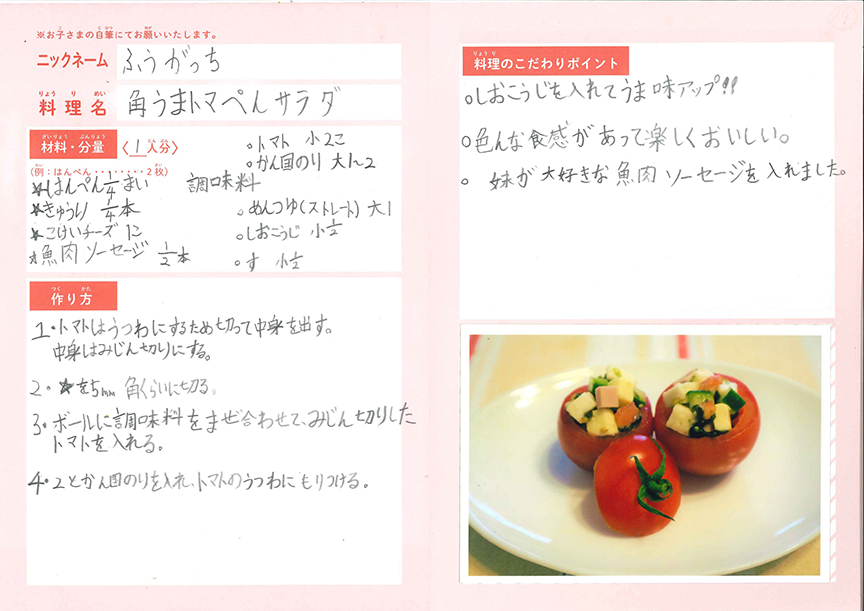 ※お子さまの自筆にてお願いいたします。
ニックネーム ふうがっち
料理名 角うまトマぺんサラダ
材料・分量 〈1人分〉
(例:はんぺん・・・・・・・・2枚)
★はんぺん 1/4まい
★きゅうり 1/4本
★こけいチーズ 1こ
★魚肉ソーセージ 1/2本
○トマト 小2こ
○かん国のり 大1~2
調味料
○めんつゆ(ストレート) 大1
○しおこうじ 小1/2
○す 小1/2
作り方
1・トマトはうつわにするため切って中身を出す。
中身はみじん切りにする。
2・★を5mm角くらいに切る。
3・ボールに調味料をまぜ合わせて、みじん切りした
トマトを入れる。
4・2とかん国のりを入れ、トマトのうつわにもりつける。
料理のこだわりポイント
○しおこうじを入れてうま味アップ!!
○色んな食感があって楽しくおいしい。
○妹が大好きな魚肉ソーセージを入れました。